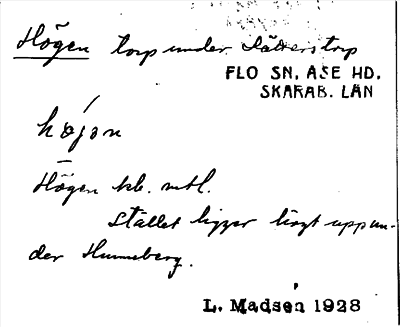 Högen torp under Sätterstorp
FLO SN, ÅSE HD.
SKARAB. LÄN
högen
Högen kb. mtl.
Stället ligger högt uppun-
der Hunneberg.
L. Madsén 1928